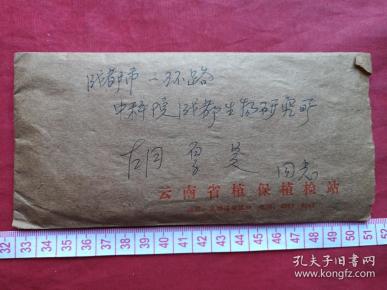 成都市一环路
中科院成都生物研究所
同志
云南省植保植检站
32 33 34 35 36 37 38 39 40 41 42 43 44 45 46 47 48 49 50 51 52
孔夫子旧书网
www.kongfz.com